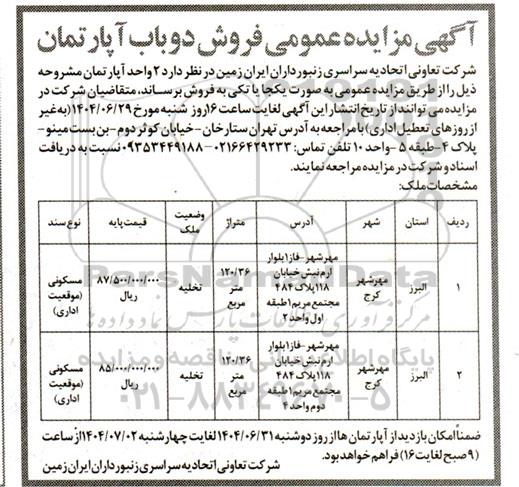 آگهی مزایده عمومی فروش دو باب آپارتمان
شرکت تعاونی اتحادیه سراسری زنبورداران ایران زمین در نظر دارد ۲ واحد آپارتمان مشروحه
ذیل را از طریق مزایده عمومی به صورت یکجا یا تکی به فروش برساند، متقاضیان شرکت در
مزایده می توانند از تاریخ انتشار این آگهی لغایت ساعت ۱۶ روز شنبه مورخ ۱۴۰۴/۰۶/۲۹ (به غیر
از روزهای تعطیل اداری) با مراجعه به آدرس تهران ستارخان - خیابان کوثر دوم - بن بست مینو -
پلاک ۴ - طبقه ۵ - واحد ۱۰ تلفن تماس: ۰۲۱۶۶۴۲۹۲۳۳ - ۰۹۳۵۳۴۴۹۱۸۸ نسبت به دریافت
اسناد و شرکت در مزایده مراجعه نمایند.
مشخصات ملک:
ردیف استان شهر آدرس متراژ وضعیت ملک قیمت پایه نوع سند
۱ البرز مهرشهر کرج مهرشهر - فاز ۱ بلوار ارم نبش خیابان ۱۱۸ پلاک ۴۸۴ مجتمع مریم ۱ طبقه اول واحد ۲ ۱۲۰/۳۶ متر مربع تخلیه ۸۷/۵۰۰/۰۰۰/۰۰۰ ریال مسکونی (موقعیت اداری)
۲ البرز مهرشهر کرج مهرشهر - فاز ۱ بلوار ارم نبش خیابان ۱۱۸ پلاک ۴۸۴ مجتمع مریم ۱ طبقه دوم واحد ۴ ۱۲۰/۳۶ متر مربع تخلیه ۸۵/۰۰۰/۰۰۰/۰۰۰ ریال مسکونی (موقعیت اداری)
ضمناً امکان بازدید از آپارتمان ها از روز دوشنبه ۱۴۰۴/۰۶/۳۱ لغایت چهارشنبه ۱۴۰۴/۰۷/۰۲ از ساعت
(۹ صبح لغایت ۱۶) فراهم خواهد بود.
شرکت تعاونی اتحادیه سراسری زنبورداران ایران زمین
ParsNamadData
پایگاه اطلاع رسانی مناقصه و مزایده
۰۲۱-۸۸۳۴۹۶۷۰-۵